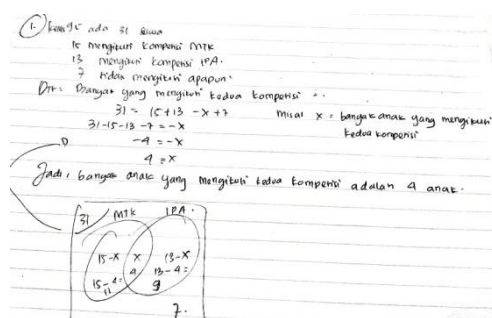 1. Kelas 9E ada 31 siswa
15 mengikuti kompetisi MTK
13 mengikuti kompetisi IPA.
7 tidak mengikuti apapun.
Dit: Banyak yang mengikuti kedua kompetisi
31 = 15+13 -x+7
misal x = banyak anak yang mengikuti kedua kompetisi
31-15-13-7 = -x
-4 = -x
4 = x
Jadi, banyak anak yang mengikuti kedua kompetisi adalah 4 anak.
31 MTK IPA.
15-x x 13-x
15-4= 4 13-4=
11 9
7.